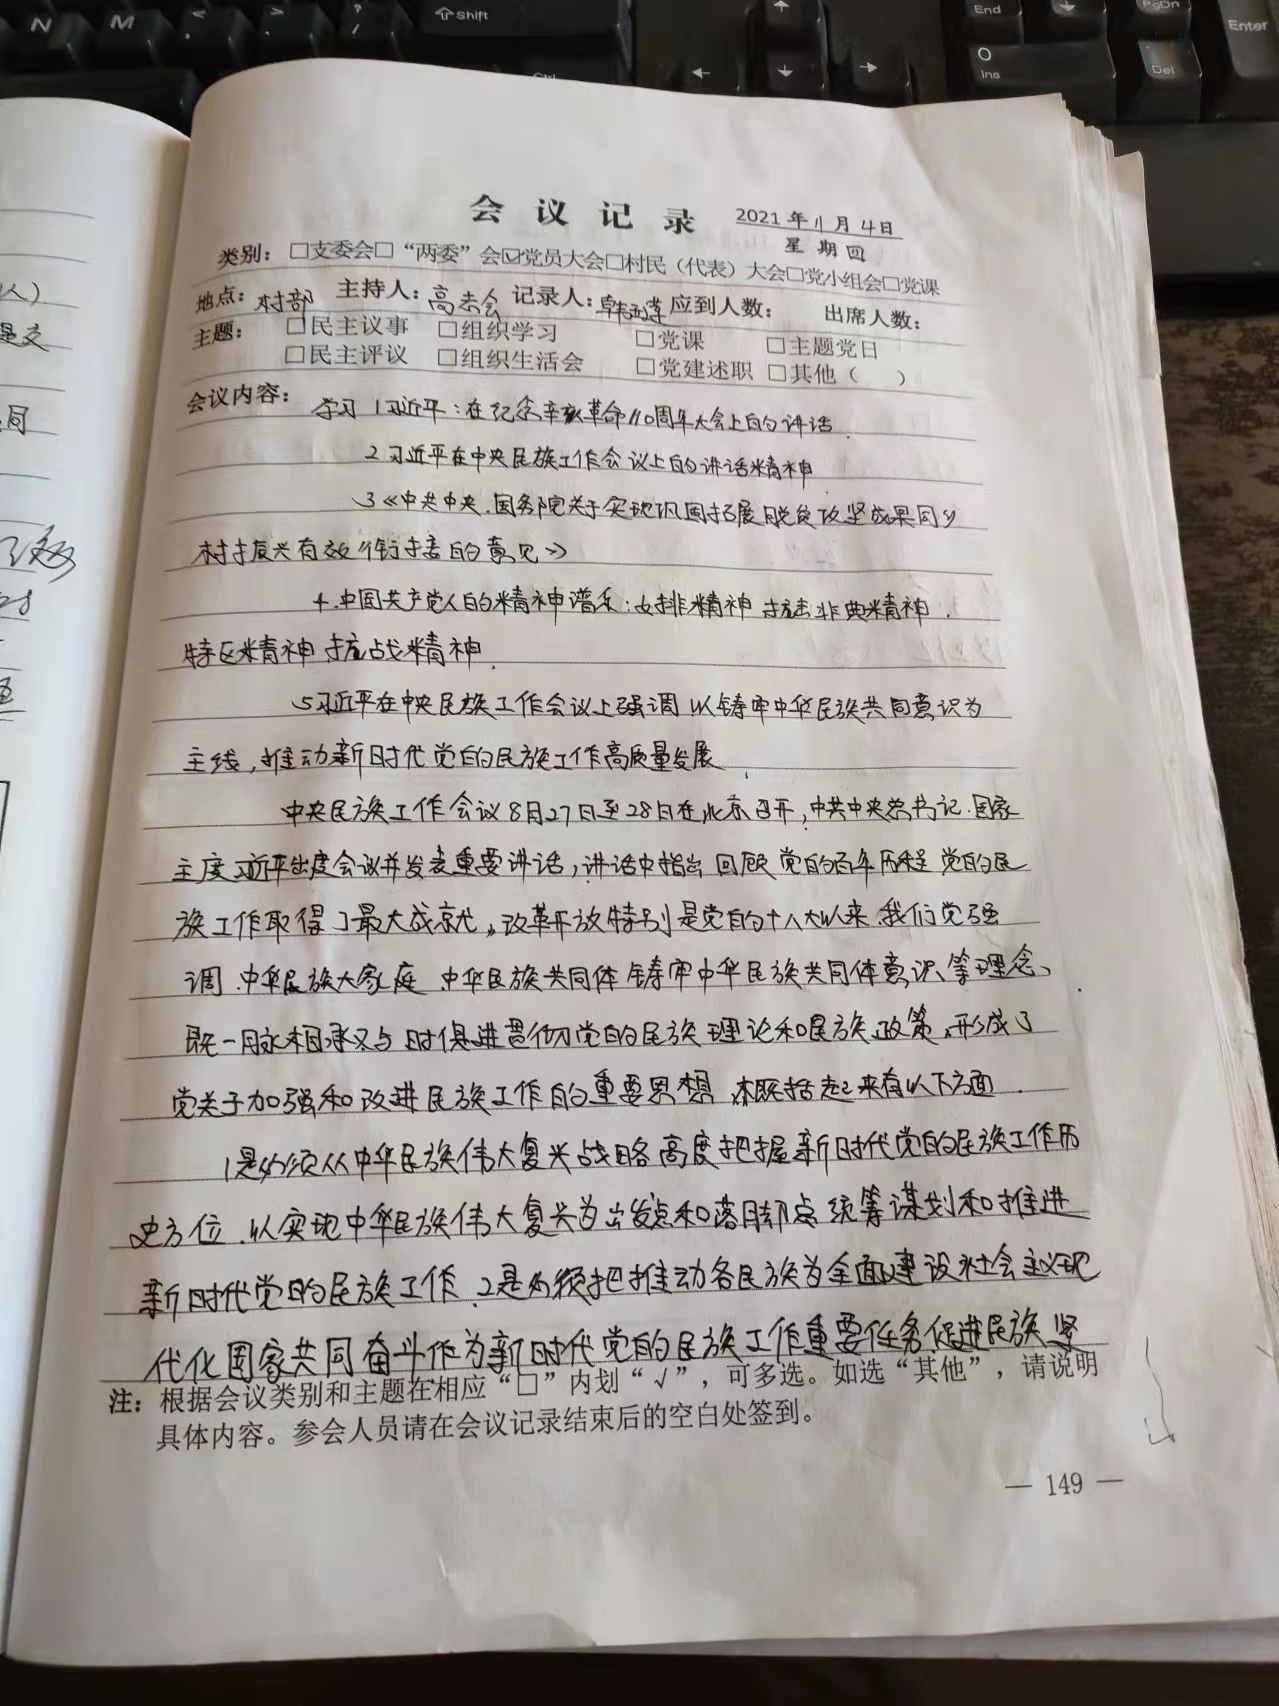 N
M
Shift
End
PgDn
Enter
0
Ins
Del
会议记录 2021年11月4日
星期四
类别：□支委会□“两委”会☑党员大会□村民（代表）大会□党小组会□党课
地点：村部 主持人：高 会 记录人：韩 应到人数： 出席人数：
主题：□民主议事 □组织学习 □党课 □主题党日
□民主评议 □组织生活会 □党建述职 □其他（ ）
会议内容：学习 1习近平：在纪念辛亥革命110周年大会上的讲话.
2习近平在中央民族工作会议上的讲话精神
3《中共中央.国务院关于实现巩固拓展脱贫攻坚成果同乡
村振兴有效衔接的意见》
4.中国共产党人的精神谱系：女排精神 抗击非典精神.
特区精神 抗战精神.
5习近平在中央民族工作会议上强调 以铸牢中华民族共同意识为
主线，推动新时代党的民族工作高质量发展
中央民族工作会议8月27日至28日在北京召开，中共中央总书记.国家
主度习近平出度会议并发表重要讲话，讲话中指出 回顾党的百年历程 党的民
族工作取得了最大成就。改革开放特别是党的十八大以来.我们党强
调.中华民族大家庭.中华民族共同体 铸牢中华民族共同体意识等理念、
既一脉相承又与时俱进贯彻党的民族理论和民族政策，形成了
党关于加强和改进民族工作的重要思想，概括起来有以下方面.
1是必须从中华民族伟大复兴战略高度把握新时代党的民族工作历
史方位.以实现中华民族伟大复兴为出发点和落脚点 统筹谋划和推进
新时代党的民族工作.2是必须把推动各民族为全面建设社会主义现
代化国家共同奋斗作为新时代党的民族工作重要任务.促进民族紧
注：根据会议类别和主题在相应“□”内划“√”，可多选。如选“其他”，请说明
具体内容。参会人员请在会议记录结束后的空白处签到。
— 149 —